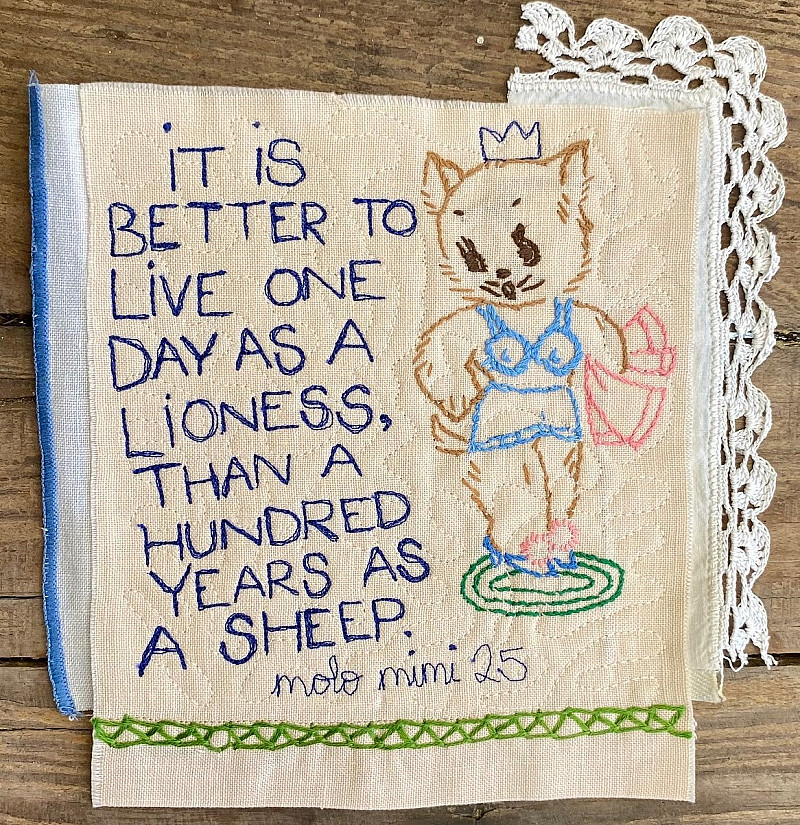 iT iS
BETTER TO
LiVE ONE
DAY AS A
LiONESS,
THAN A
HUNDRED
YEARS AS
A SHEEP.
molo mimi 25